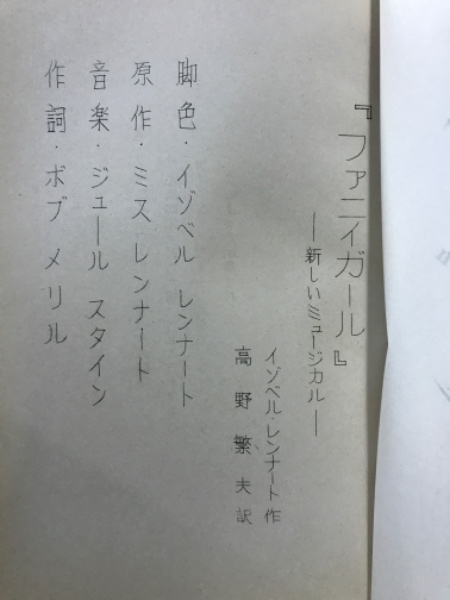 『ファニィガール』
──新しいミュージカル──
イゾベル・レンナート作
高野繁夫訳
脚色・イゾベル レンナート
原作・ミス レンナート
音楽・ジュール スタイン
作詞・ボブ メリル